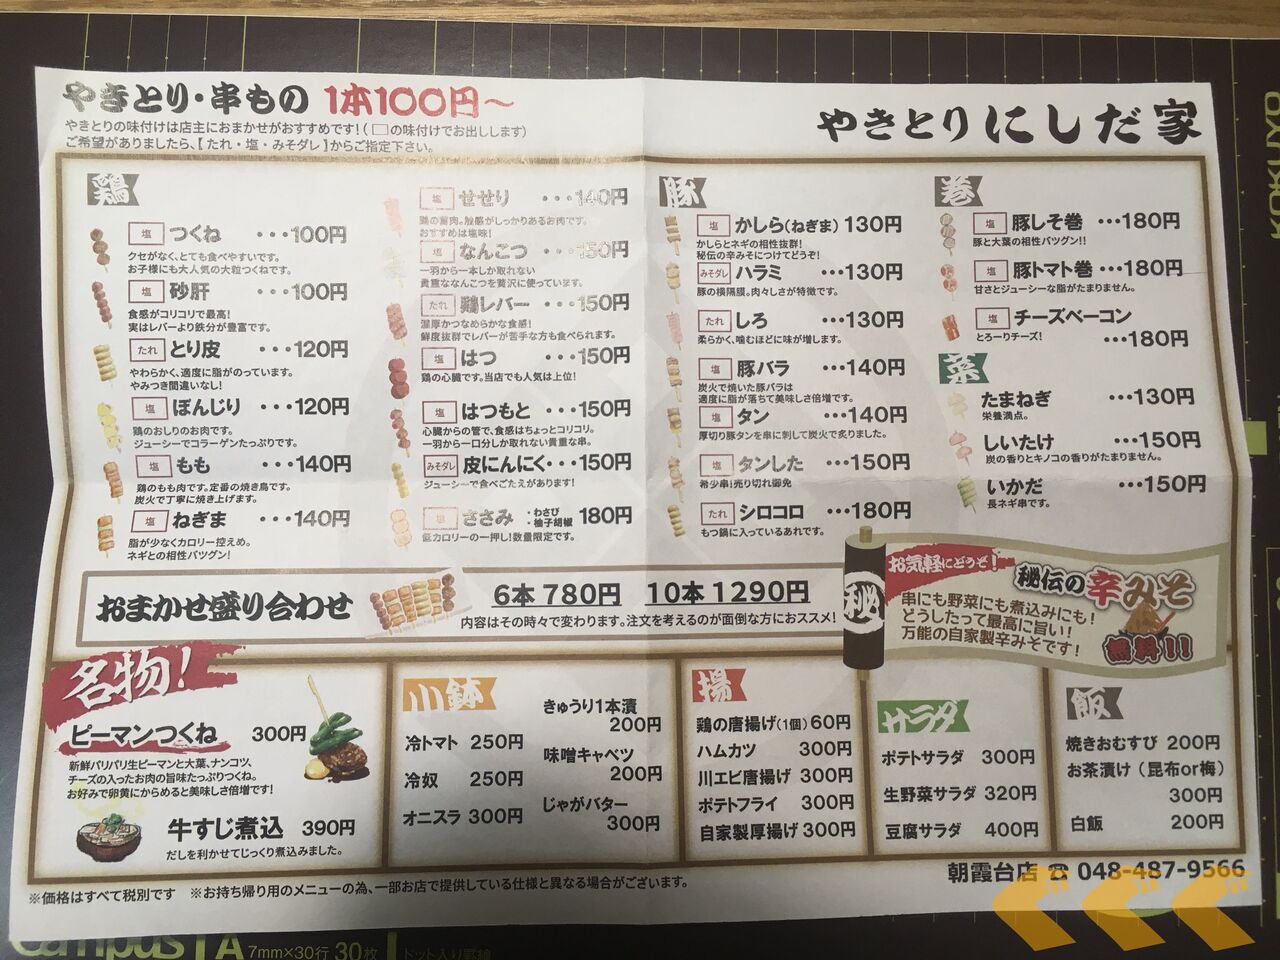 やきとり・串もの 1本100円〜
やきとりの味付けは店主におまかせがおすすめです!(□の味付けでお出しします)
ご希望がありましたら、【たれ・塩・みそダレ】からご指定下さい。
やきとりにしだ家
鶏
塩 つくね ・・・100円
クセがなく、とても食べやすいです。
お子様にも大人気の大粒つくねです。
塩 砂肝 ・・・100円
食感がコリコリで最高!
実はレバーより鉄分が豊富です。
たれ とり皮 ・・・120円
やわらかく、適度に脂がのっています。
やみつき間違いなし!
塩 ぼんじり ・・・120円
鶏のおしりのお肉です。
ジューシーでコラーゲンたっぷりです。
塩 もも ・・・140円
鶏のもも肉です。定番の焼き鳥です。
炭火で丁寧に焼き上げます。
塩 ねぎま ・・・140円
脂が少なくカロリー控えめ。
ネギとの相性バツグン!
塩 せせり ・・・140円
鶏の首肉。触感がしっかりあるお肉です。
おすすめは塩味!
塩 なんこつ ・・・150円
一羽から一本しか取れない
貴重ななんこつを贅沢に使っています。
たれ 鶏レバー ・・・150円
濃厚かつなめらかな食感!
鮮度抜群でレバーが苦手な方も食べられます。
塩 はつ ・・・150円
鶏の心臓です。当店でも人気は上位!
塩 はつもと ・・・150円
心臓からの管で、食感はちょっとコリコリ。
一羽から一口分しか取れない貴重な串。
みそダレ 皮にんにく・・・150円
ジューシーで食べごたえがあります!
塩 ささみ ・わさび ・柚子胡椒 180円
低カロリーの一押し!数量限定です。
豚
塩 かしら(ねぎま) 130円
かしらとネギの相性抜群!
秘伝の辛みそにつけてどうぞ!
みそダレ ハラミ ・・・130円
豚の横隔膜。肉々しさが特徴です。
たれ しろ ・・・130円
柔らかく、噛むほどに味が増します。
塩 豚バラ ・・・140円
炭火で焼いた豚バラは
適度に脂が落ちて美味しさ倍増です。
塩 タン ・・・140円
厚切り豚タンを串に刺して炭火で炙りました。
塩 タンした ・・・150円
希少串!売り切れ御免
たれ シロコロ ・・・180円
もつ鍋に入っているあれです。
巻
塩 豚しそ巻 ・・・180円
豚と大葉の相性バツグン!!
塩 豚トマト巻 ・・・180円
甘さとジューシーな脂がたまりません。
塩 チーズベーコン
とろーりチーズ! ・・・180円
菜
たまねぎ ・・・130円
栄養満点。
しいたけ ・・・150円
炭の香りとキノコの香りがたまりません。
いかだ ・・・150円
長ネギ串です。
おまかせ盛り合わせ
6本 780円 10本 1290円
内容はその時々で変わります。注文を考えるのが面倒な方におススメ!
秘
お気軽にどうぞ!
秘伝の辛みそ
串にも野菜にも煮込みにも!
どうしたって最高に旨い!
万能の自家製辛みそです!
無料!!
名物!
ピーマンつくね 300円
新鮮パリパリ生ピーマンと大葉、ナンコツ、
チーズの入ったお肉の旨味たっぷりつくね。
お好みで卵黄にからめると美味しさ倍増です!
牛すじ煮込 390円
だしを利かせてじっくり煮込みました。
小鉢
冷トマト 250円
冷奴 250円
オニスラ 300円
きゅうり1本漬
200円
味噌キャベツ
200円
じゃがバター
300円
揚
鶏の唐揚げ(1個) 60円
ハムカツ 300円
川エビ唐揚げ 300円
ポテトフライ 300円
自家製厚揚げ 300円
サラダ
ポテトサラダ 300円
生野菜サラダ 320円
豆腐サラダ 400円
飯
焼きおむすび 200円
お茶漬け(昆布or梅)
300円
白飯 200円
※価格はすべて税別です ※お持ち帰り用のメニューの為、一部お店で提供している仕様と異なる場合がございます。
朝霞台店 ☎ 048-487-9566
Campus A 7mm×30行 30枚 ドット入り罫線